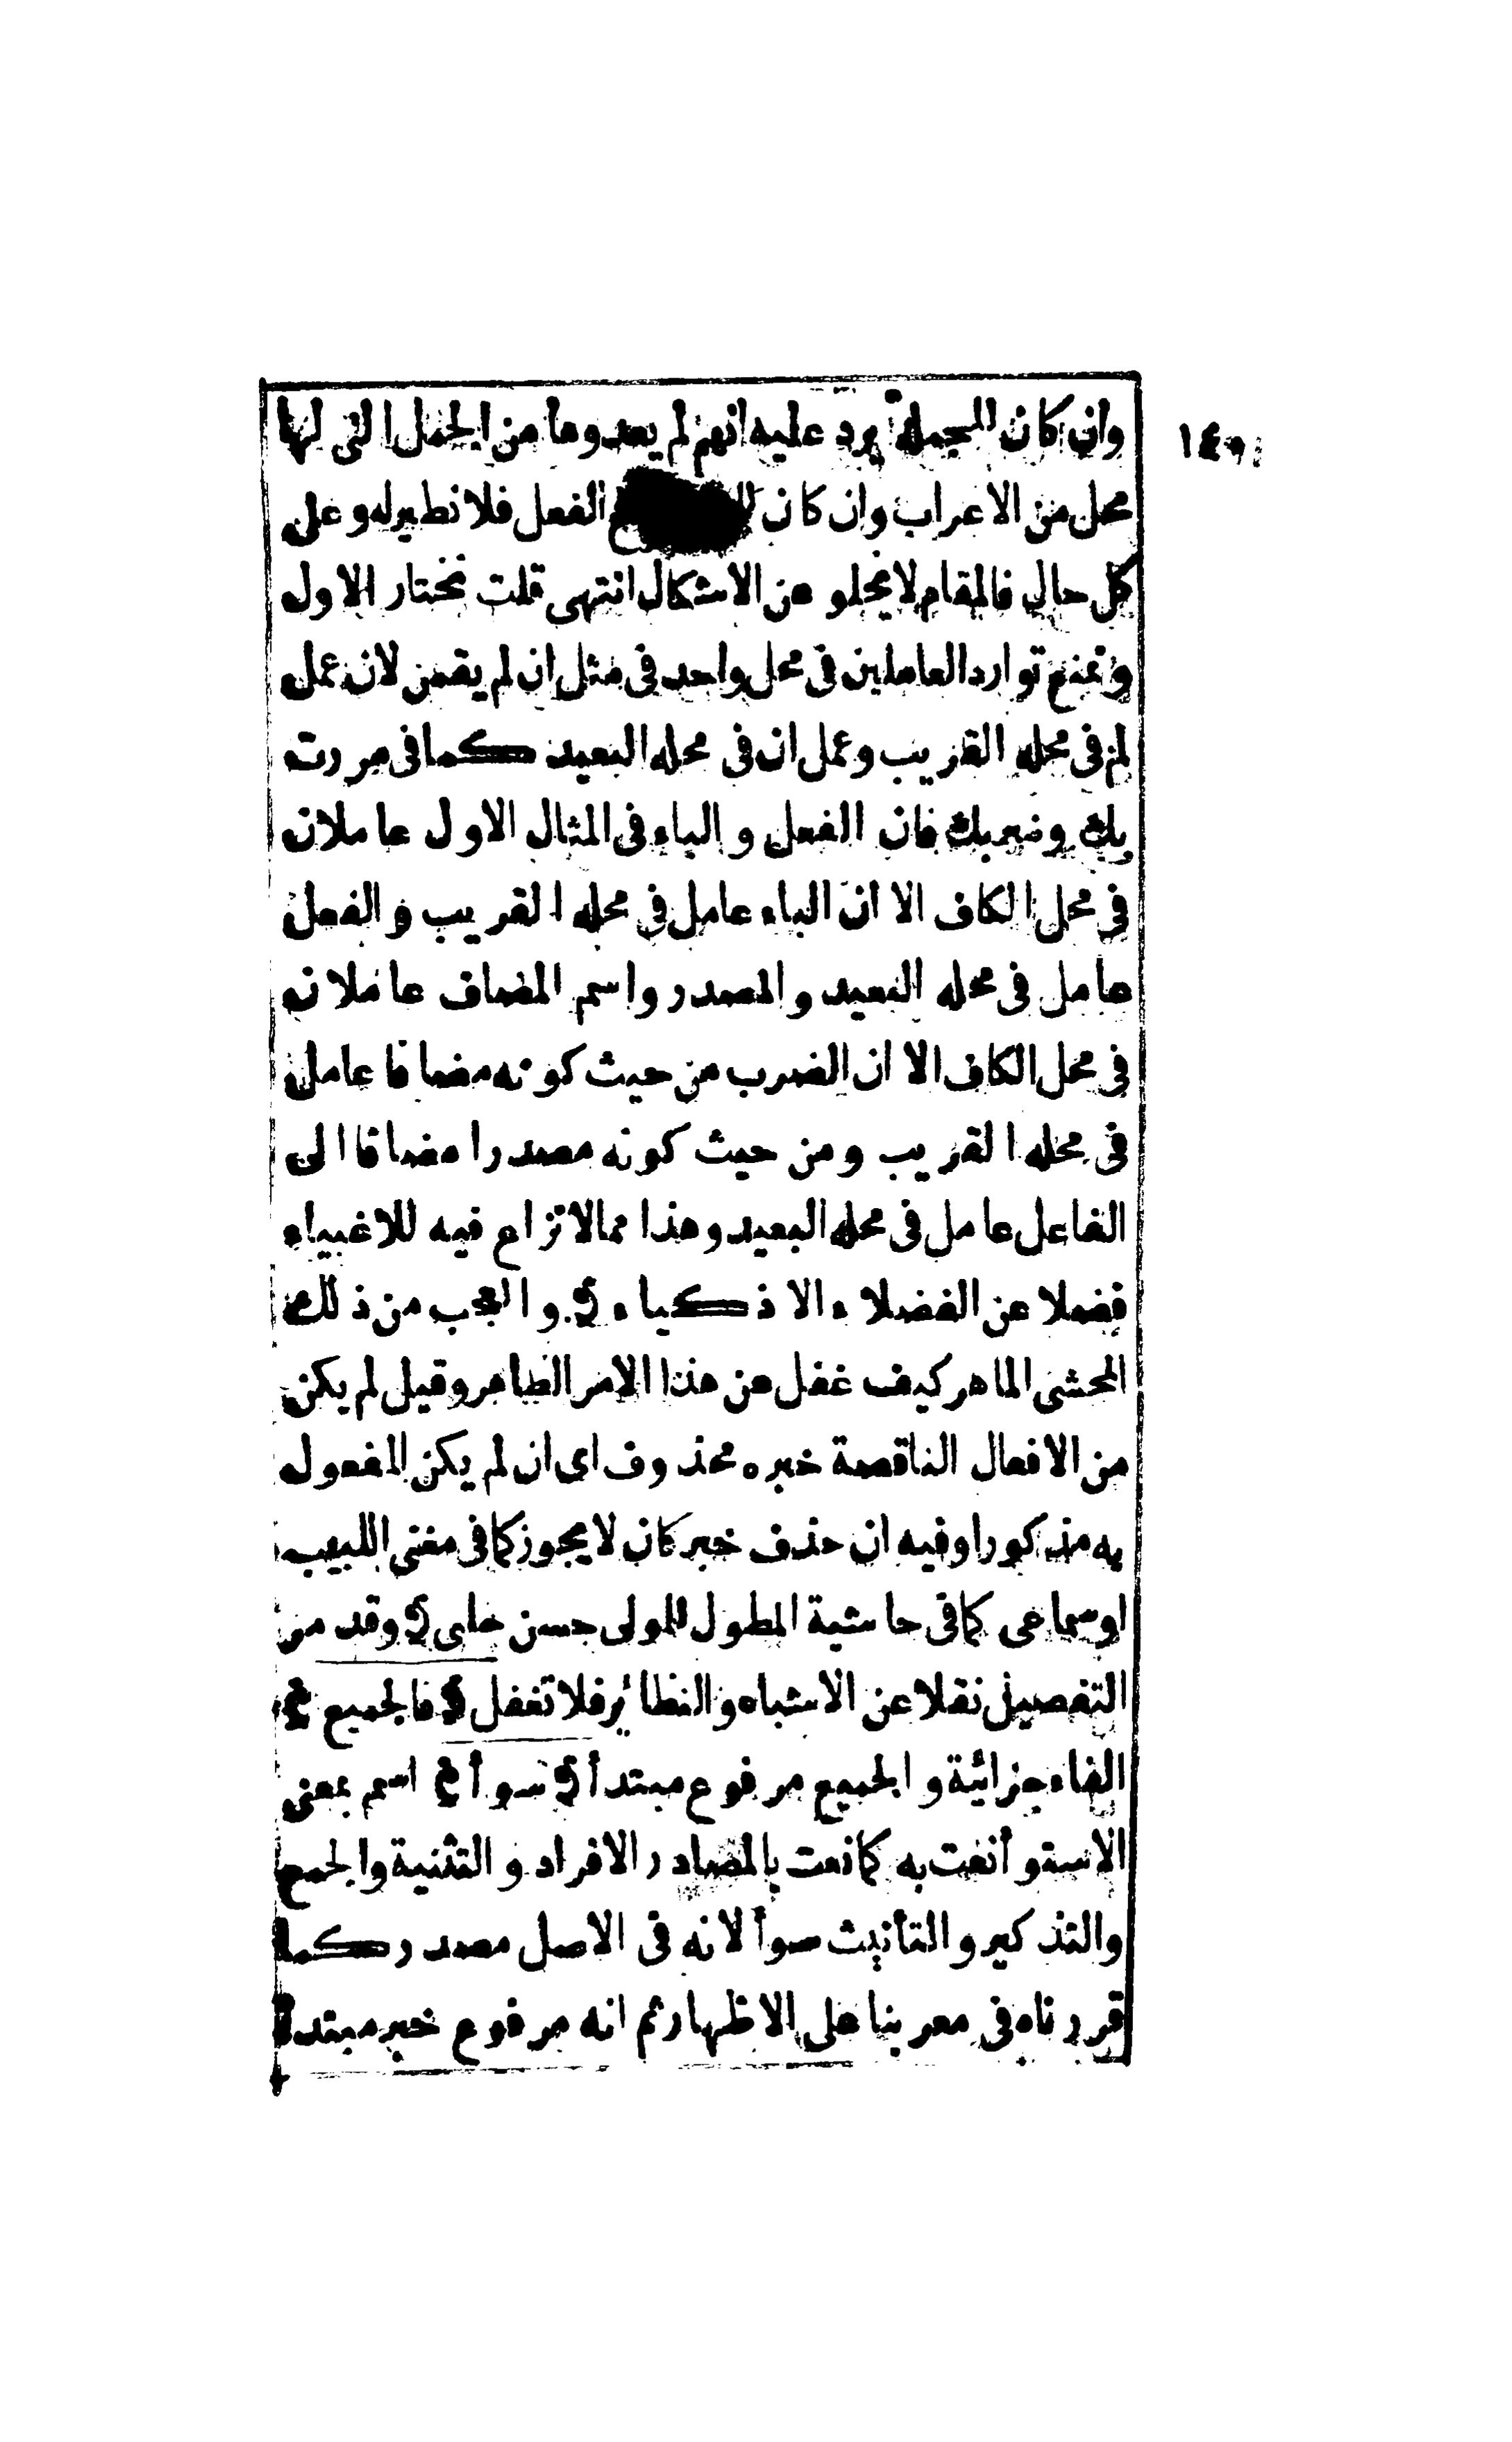 وان كان للجملة يرد عليه انهم لم يعدوها من الجمل التى لها
محل من الاعراب وان كان الفعل فلا نظير له وعلى
كل حال فالمقام لا يخلو عن الاشكال انتهى قلت نختار الاول
ونمنع توارد العاملين فى محل واحد فى مثل ان لم يقمن لان عمل
لم فى محله القريب وعمل ان فى محله البعيد كما فى مررت
بك وضربك فان الفعل والباء فى المثال الاول عاملان
فى محل الكاف الا ان الباء عامل فى محله القريب والفعل
عامل فى محله البعيد والمصدر واسم المضاف عاملان
فى محل الكاف الا ان الضرب من حيث كونه مضافا عامل
فى محله القريب ومن حيث كونه مصدرا مضافا الى
الفاعل عامل فى محله البعيد وهذا مما لا نزاع فيه للاغبياء
فضلا عن الفضلاء الاذكياء والعجب من ذلك
المحشى الماهر كيف غفل عن هذا الامر الظاهر وقيل لم يكن
من الافعال الناقصة خبره محذوف اى ان لم يكن المفعول
به مذكورا وفيه ان حذف خبر كان لا يجوز كما فى مغنى اللبيب
او سماعى كما فى حاشية المطول للمولى حسن چلبى وقد مر
التفصيل نقلا عن الاشباه والنظائر فلا تغفل فالجميع
الفاء جزائية والجميع مرفوع مبتدأ سوأ اسم بمعنى
الاستوأ نعت به كما نعت بالمصادر الافراد والتثنية والجمع
والتذكير والتأنيث سوأ لانه فى الاصل مصدر كما
قررناه فى معربنا على الاظهار ثم انه مرفوع خبر مبتدأ